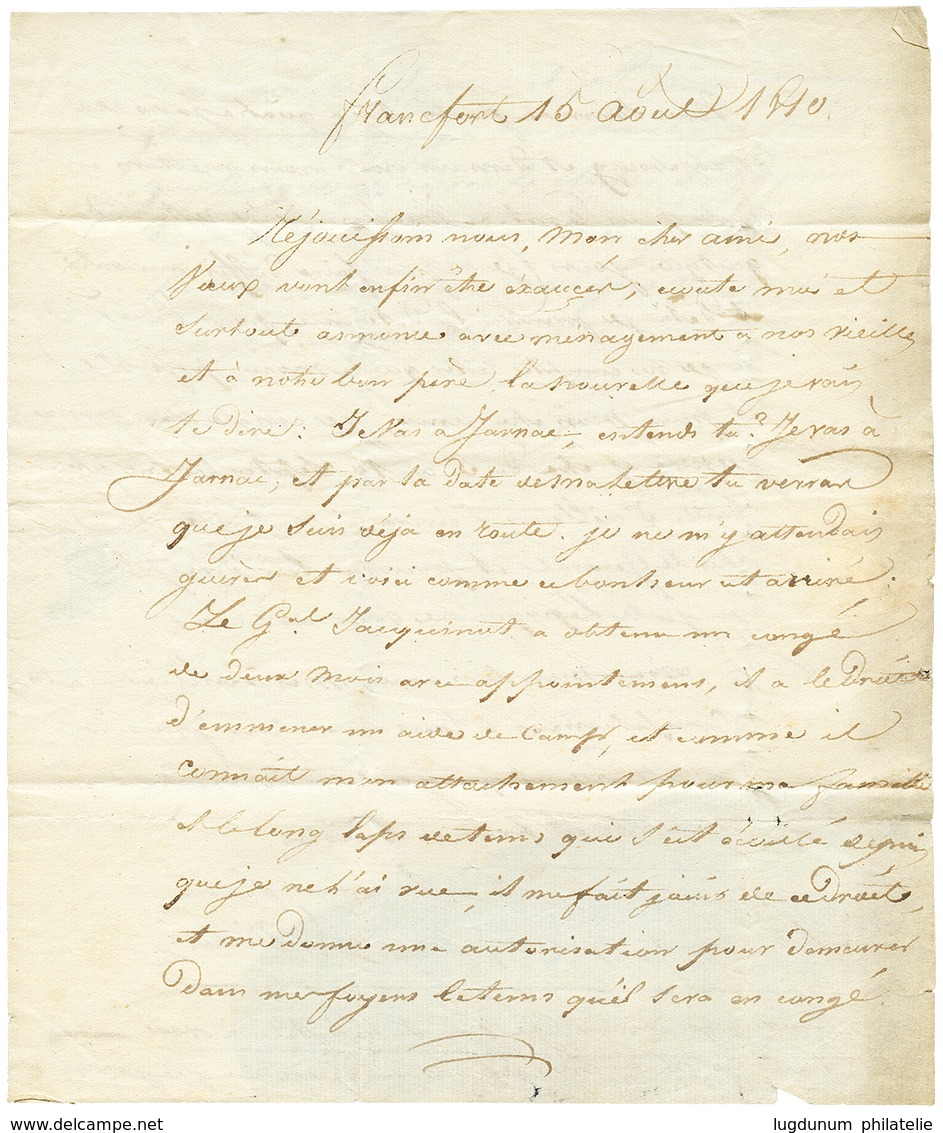 Francfort 15 août 1810.
Réjouissons nous, mon cher ami, nos
vœux vont enfin être éxaucés; ecoute moi et
surtout annonce avec ménagement a nos vieilles
et à notre bon père la nouvelle que je vais
te dire: Je vas a Jarnac, entends tu? Je vas à
Jarnac, et par la date de ma lettre tu verras
que je suis déjà en route. je ne m'y attendais
guères et voici comme ce bonheur est arrivé.
Le Gal Jacquinot a obtenu un congé
de deux mois avec appointemens, il a le Droit
d'emmener un aide de Camp, et comme il
connait mon attachement pour ma famille
et le long laps de tems qui s'est écoulé depuis
que je ne l'ai vue, il me fait jouir de ce Droit,
et me donne une autorisation pour demeurer
Dans mes foyers le tems qu'il sera en congé.
www.delcampe.net
lugdunum philatelie